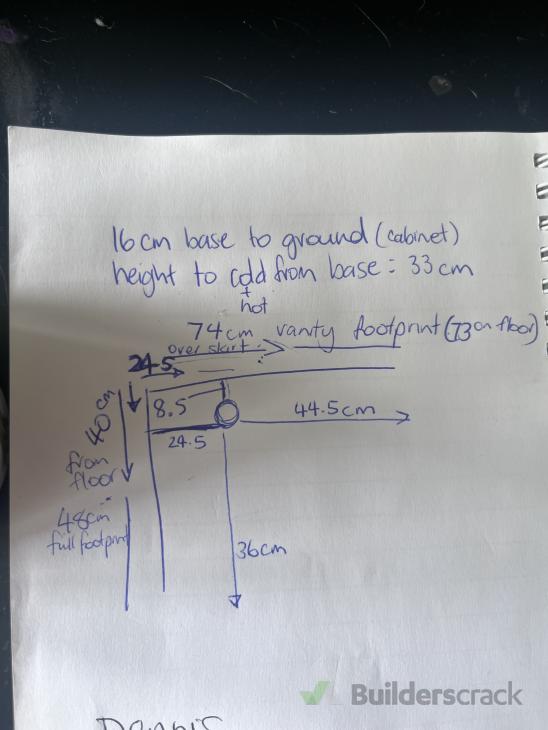 16cm base to ground (cabinet)
height to cold from base = 33cm
+
hot
74cm vanity footprint (73 on floor)
over skirt
24.5
8.5
44.5cm
24.5
40cm
from
floor
48cm
full footprint
36cm
Builderscrack